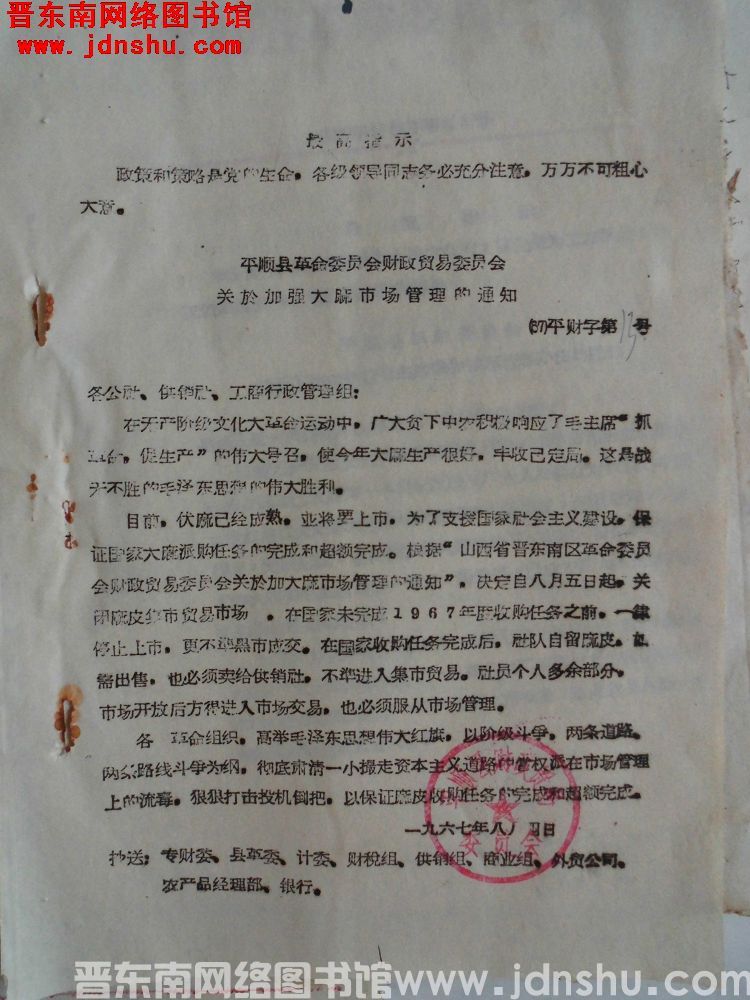 晋东南网络图书馆
www.jdnshu.com
最高指示
政策和策略是党的生命，各级领导同志务必充分注意，万万不可粗心
大意。
平顺县革命委员会财政贸易委员会
关於加强大麻市场管理的通知
(67)平财字第13号
各公社、供销社、工商行政管理组：
在无产阶级文化大革命运动中，广大贫下中农积极响应了毛主席“抓
革命，促生产”的伟大号召，使今年大麻生产很好，丰收已定局。这是战
无不胜的毛泽东思想的伟大胜利。
目前，伏麻已经成熟，並将要上市，为了支援国家社会主义建设，保
证国家大麻派购任务的完成和超额完成。根据“山西省晋东南区革命委员
会财政贸易委员会关於加大麻市场管理的通知”，决定自八月五日起，关
闭麻皮集市贸易市场 ，在国家未完成1967年度收购任务之前，一律
停止上市，更不準黑市成交。在国家收购任务完成后，社队自留麻皮，如
需出售，也必须卖给供销社，不準进入集市贸易。社员个人多余部分，
市场开放后方得进入市场交易，也必须服从市场管理。
各 革命组织，高举毛泽东思想伟大红旗，以阶级斗争，两条道路，
两条路线斗争为纲，彻底肃清一小撮走资本主义道路的当权派在市场管理
上的流毒，狠狠打击投机倒把，以保证麻皮收购任务的完成和超额完成。
一九六七年八月 日
抄送：专财委、县革委、计委、财税组、供销组、商业组、外贸公司、
农产品经理部、银行。
晋东南网络图书馆www.jdnshu.com